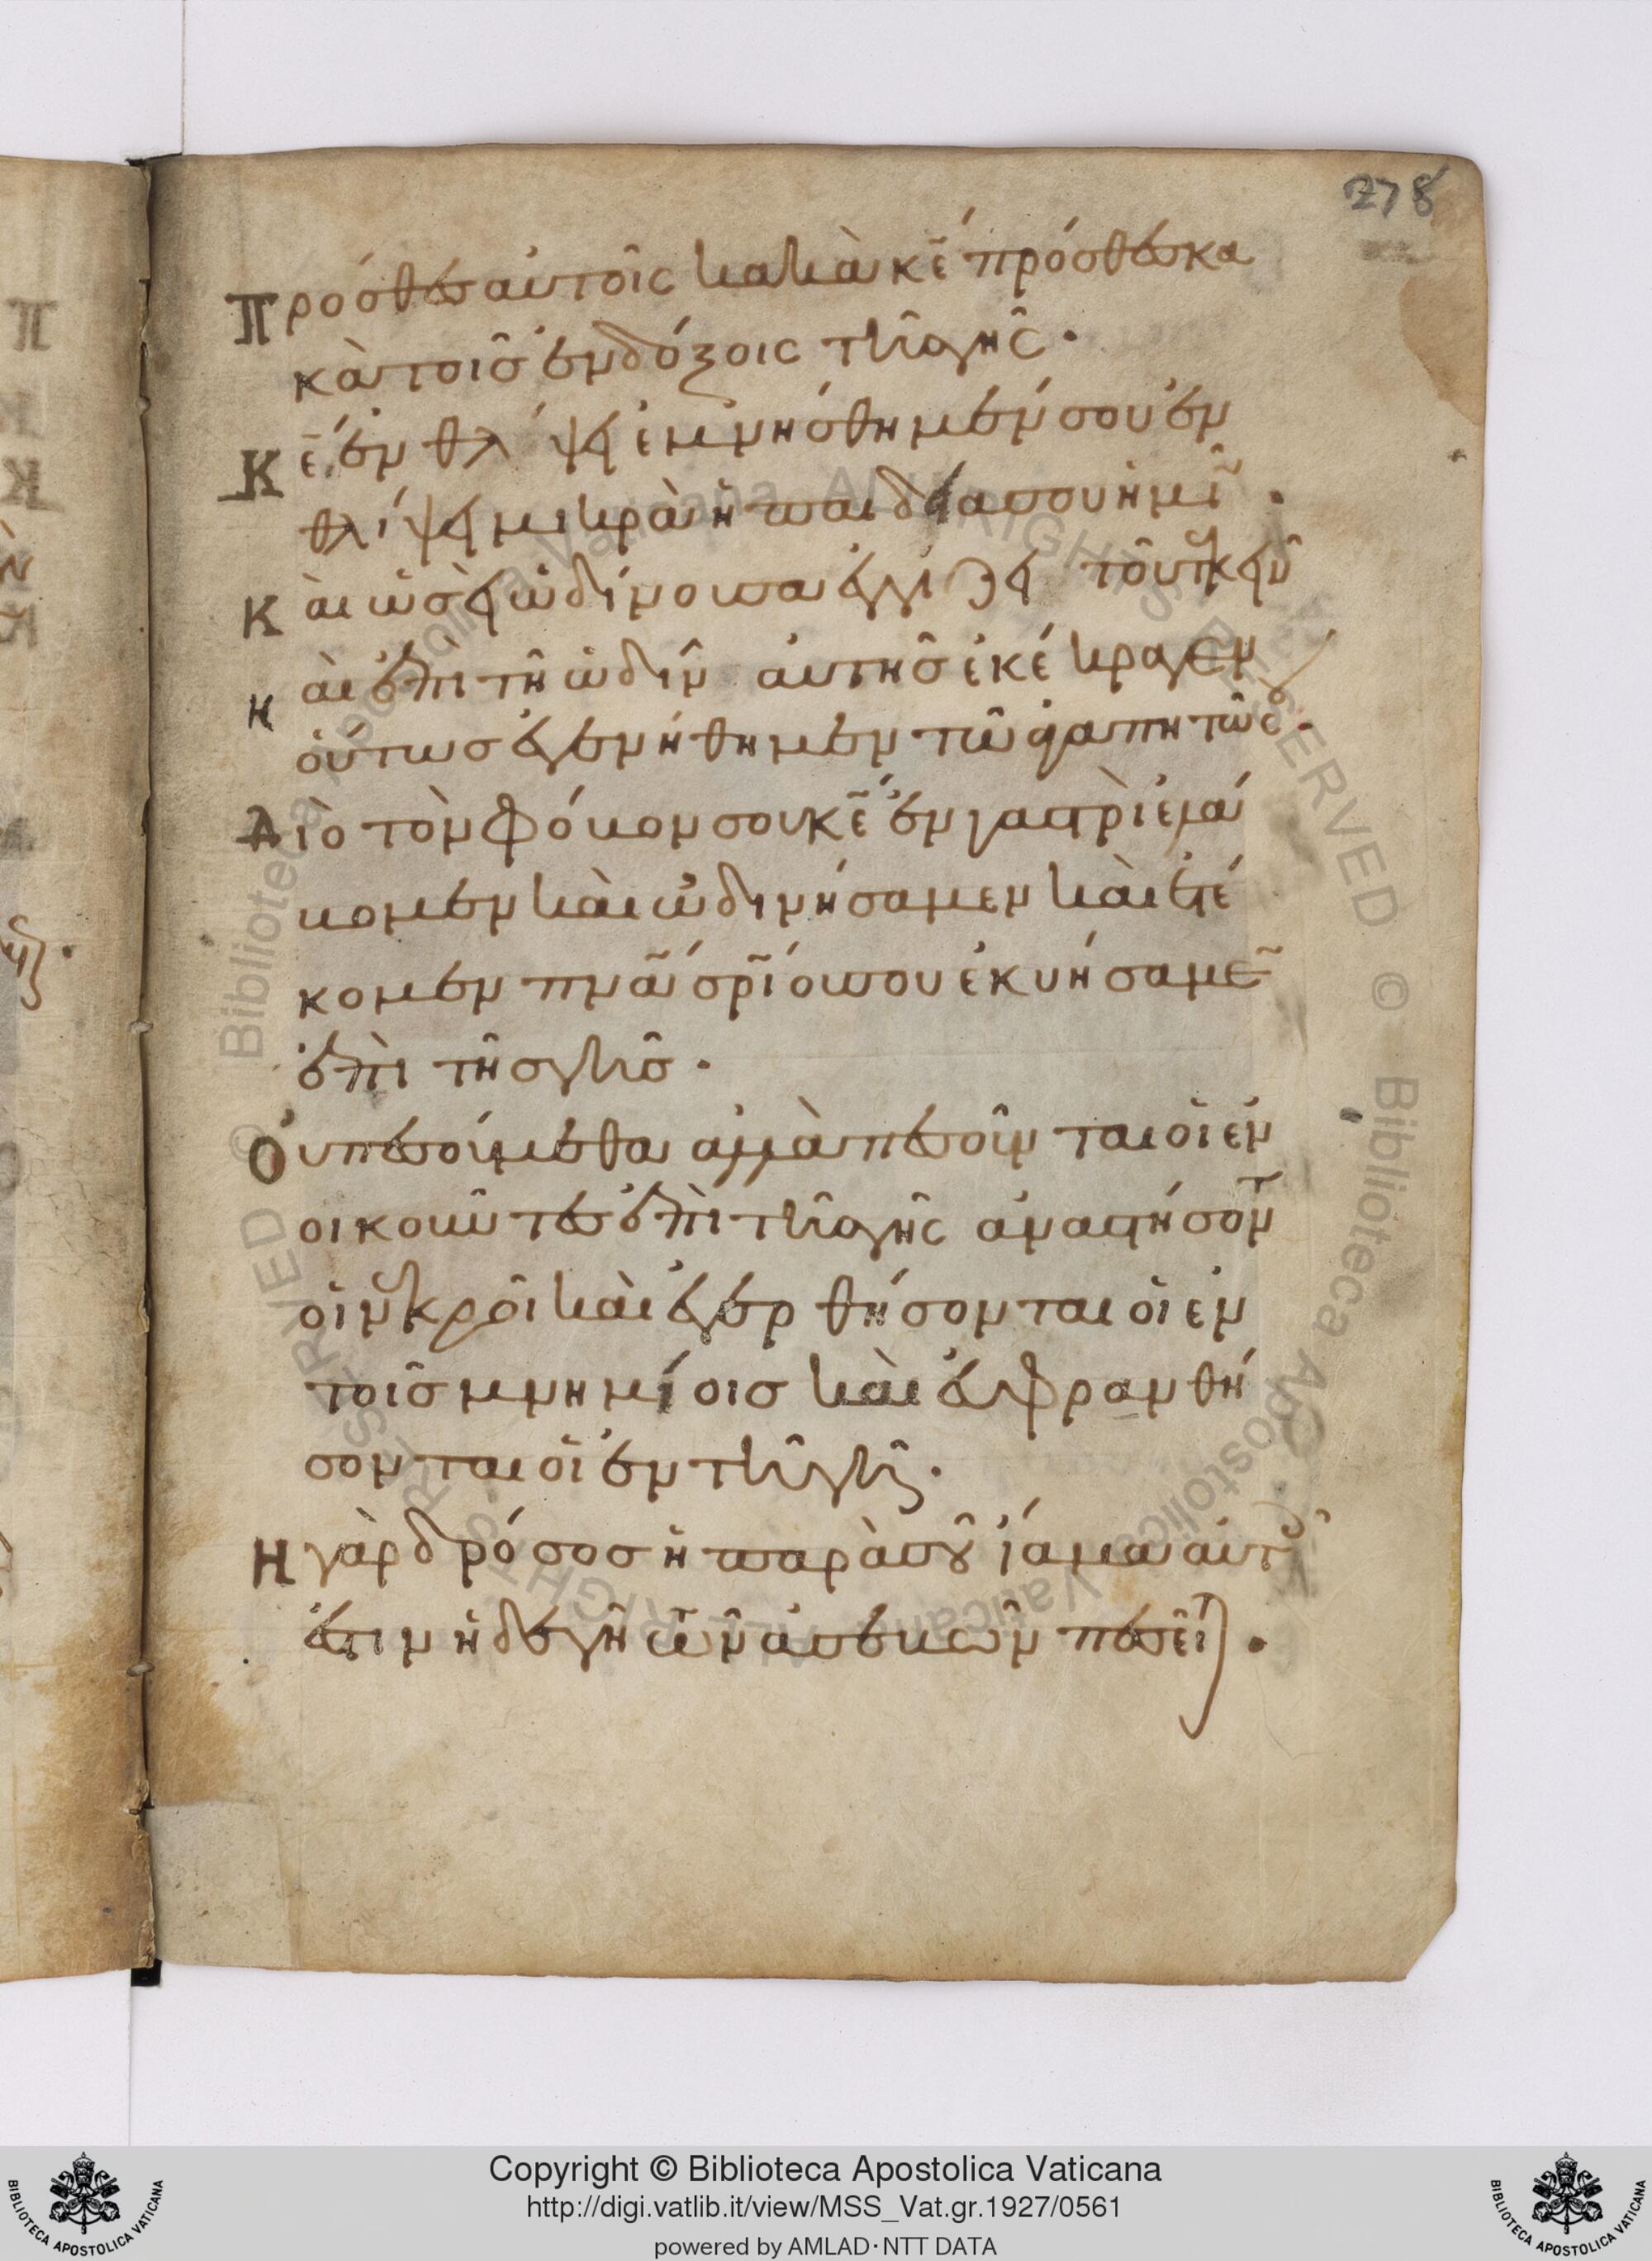 278
Πρόσθες αὐτοῖς κακὰ κε̄ πρόσθες κα
κὰ τοῖς ἐνδόξοις τῆς γῆς.
Κε̄ ἐν θλίψει ἐμνήσθημέν σου ἐν
θλίψει μικρὰ ἡ παιδεία σου ἡμῖν.
Καὶ ὡς ἡ ὠδίνουσα ἐγγίζει τοῦ τεκεῖν
καὶ ἐπὶ τῆ ὠδῖνι αὐτῆς ἐκέκραγεν
οὕτως ἐγενήθημεν τῶ ἀγαπητῶ σου.
Διὸ τὸν φόβον σου κε̄ ἐν γαστρὶ ἐλά
βομεν καὶ ὠδινήσαμεν καὶ ἐτέ
κομεν πνᾱ σρῑ́ου ὃ ἐκυήσαμεν
ἐπὶ τῆς γῆς.
Οὐ πεσούμεθα ἀλλὰ πεσοῦνται οἱ ἐν
οικοῦντες ἐπὶ τῆς γῆς ἀναστήσοντ
οἱ νεκροὶ καὶ ἐγερθήσονται οἱ ἐν
τοῖς μνημίοις καὶ εὐφρανθή
σονται οἱ ἐν τῆ γῆ.
Ἡ γὰρ δρόσος ἡ παρὰ σοῦ ἴαμα αὐτοῖς
ἐστιν ἡ δὲ γῆ τῶν ἀσεβῶν πεσεῖται.
Copyright © Biblioteca Apostolica Vaticana
http://digi.vatlib.it/view/MSS_Vat.gr.1927/0561
powered by AMLAD·NTT DATA
BIBLIOTECA APOSTOLICA VATICANA
BIBLIOTECA APOSTOLICA VATICANA